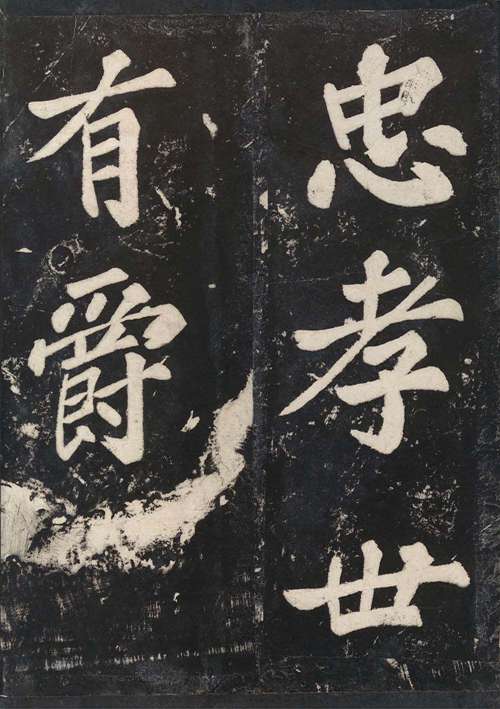 忠孝世
有爵